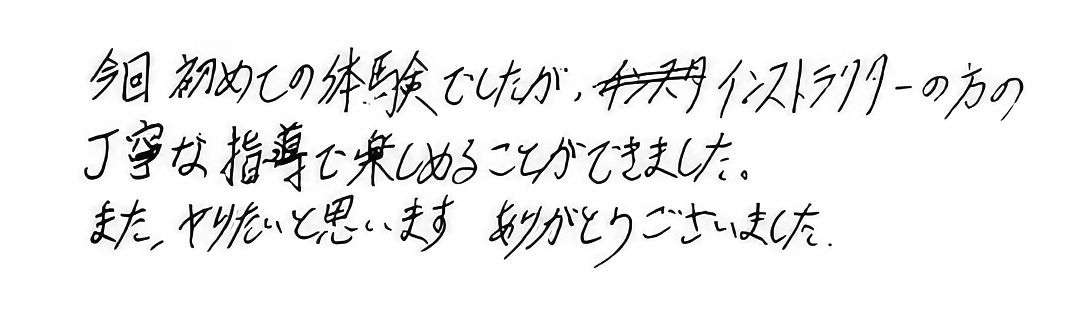 今回初めての体験でしたが、インストラクターの方の
丁寧な指導で楽しめることができました。
また、やりたいと思います ありがとうございました.